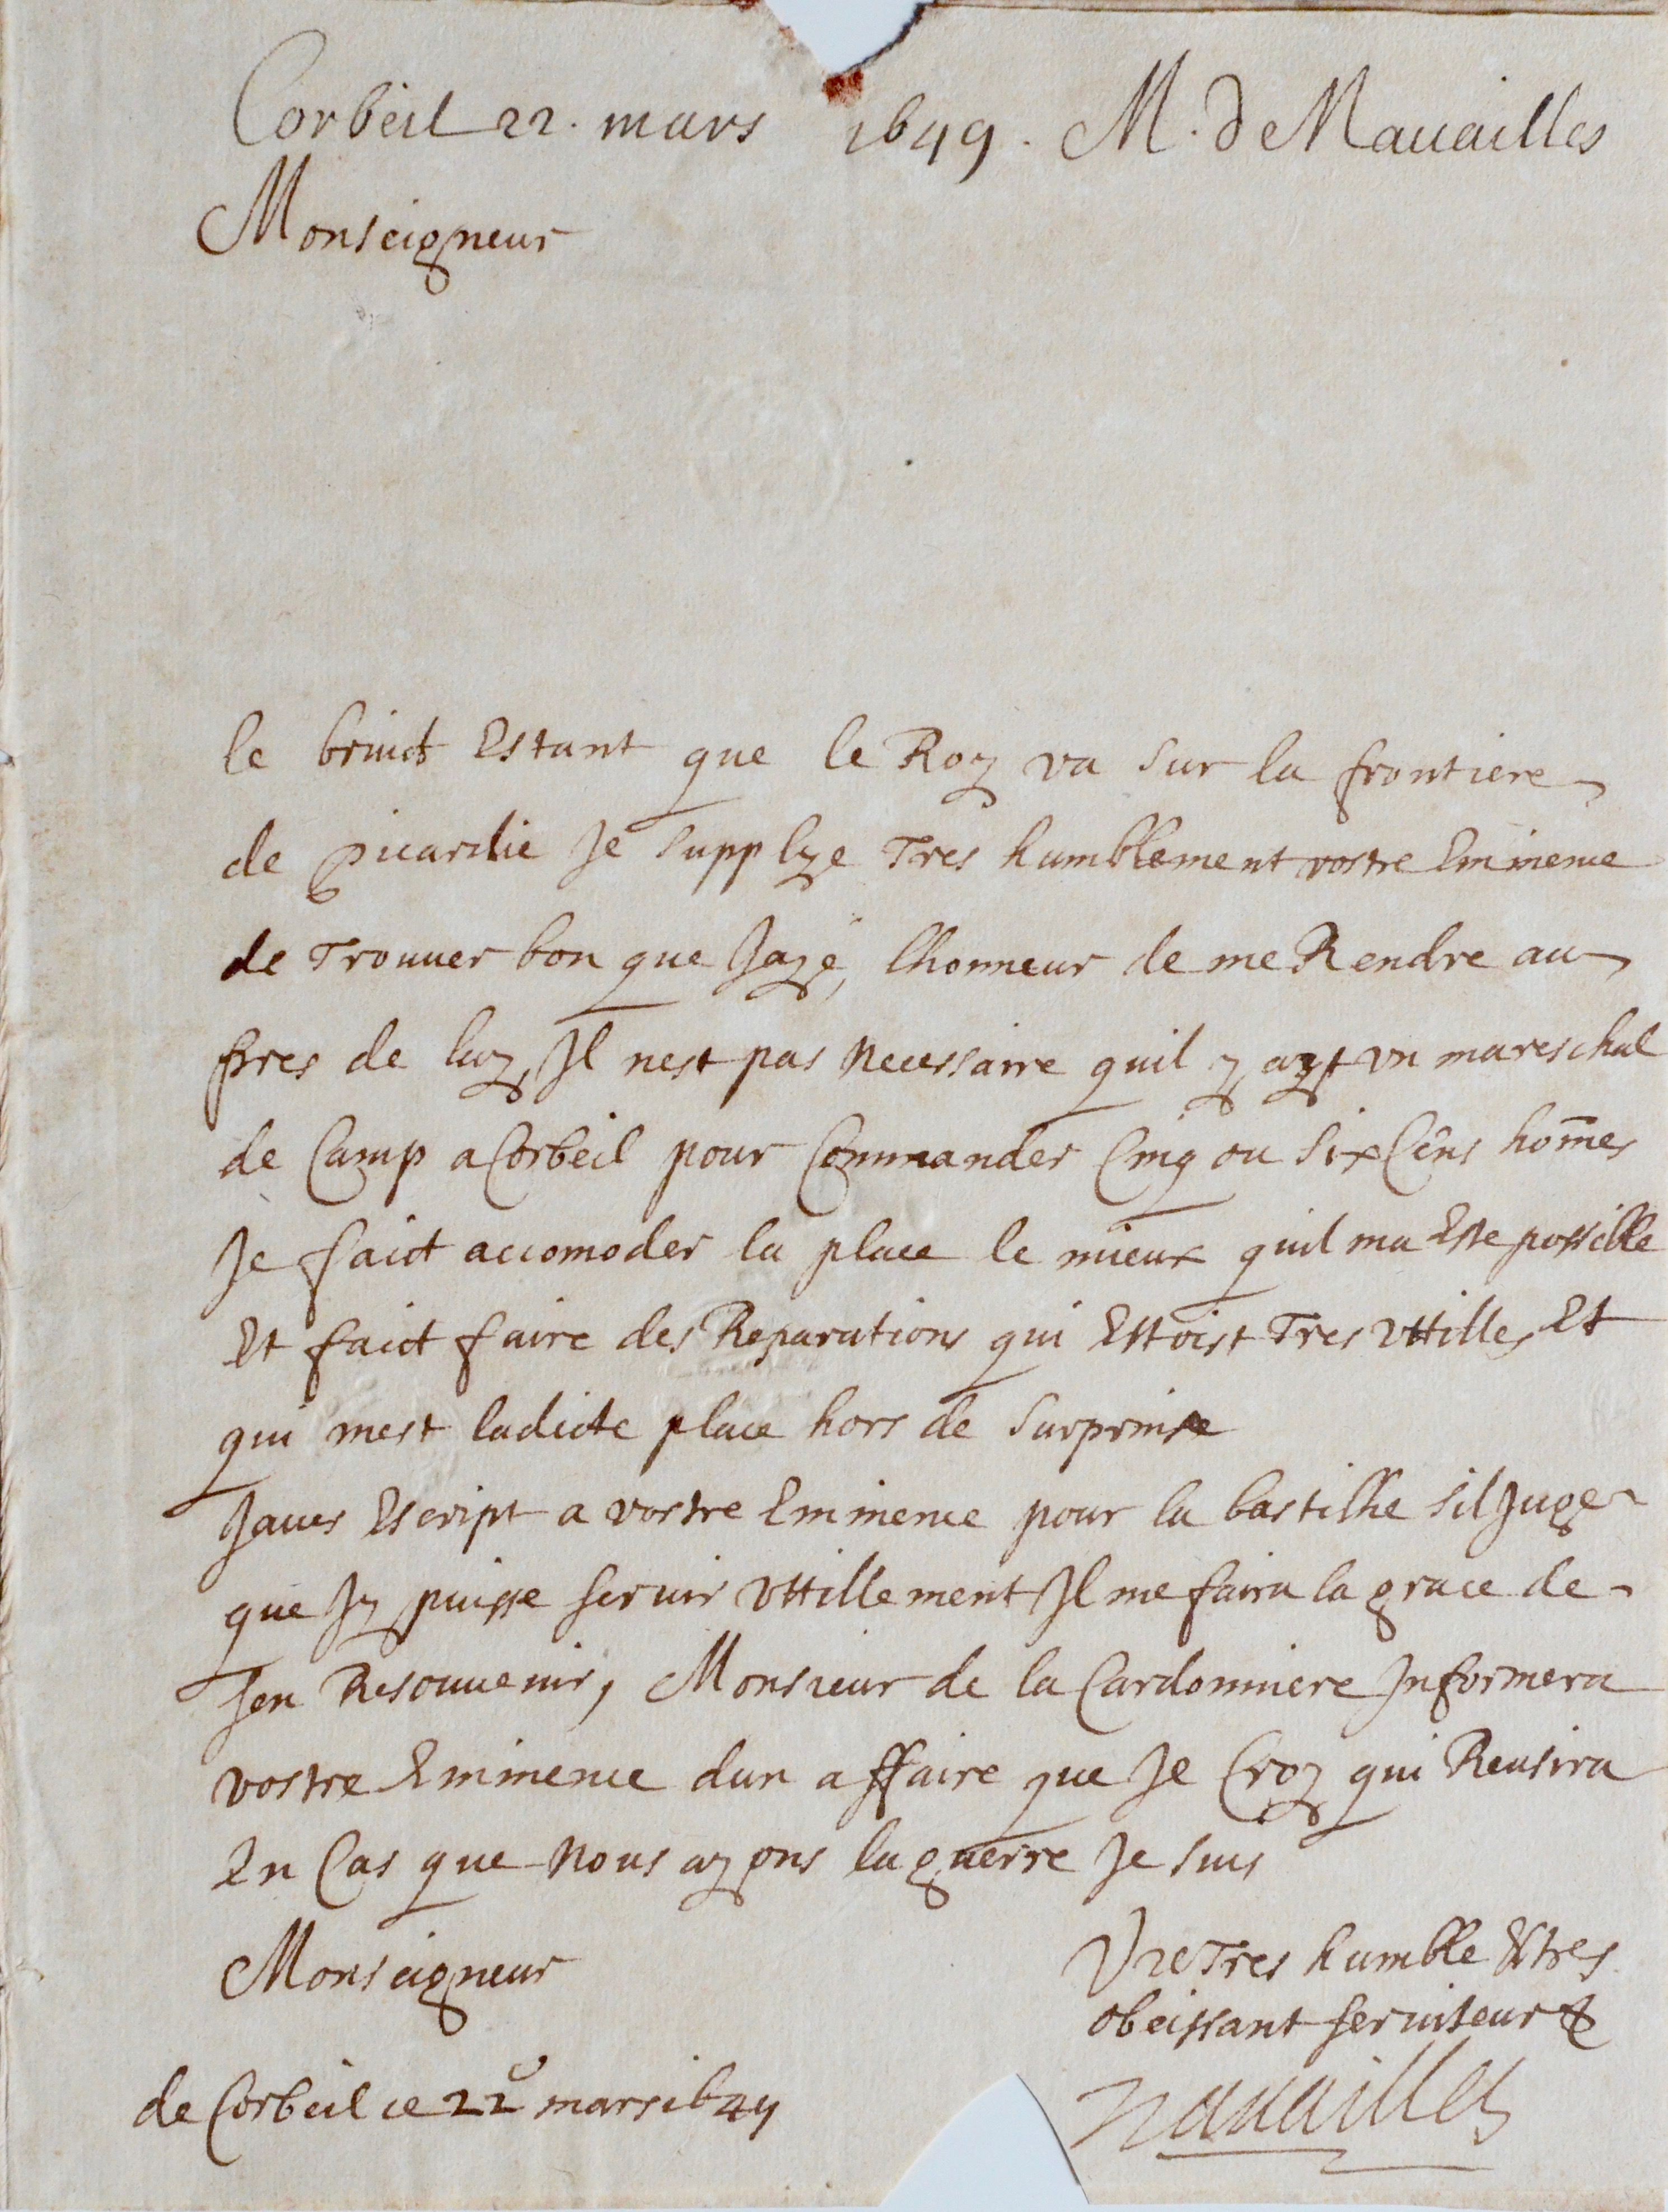 Corbeil 22. mars 1649. M. de Nauailles
Monseigneur
le bruict Estant que le Roy va sur la frontiere
de picardie Je supplye Tres humblement vostre Eminence
de Trouuer bon que Jaye, lhonneur de me Rendre au
pres de luy, Il nest pas necessaire quil y ayt vn mareschal
de Camp a Corbeil pour Commander Cinq ou six Cens hom̄es
Je faict accomoder la place le mieux quil ma Este possible
Et faict faire des Reparations qui Estoist Tres Vttilles Et
qui mest ladicte place hors de surprinse
Jaues Escript a vostre Eminence pour la bastilhe sil Juge
que Jy puisse seruir Vttillement Il me faira la grace de
sen Resouuenir, Monsieur de la Cardonniere Informera
vostre Eminence dun affaire que Je Croy qui Reusira
En Cas que Nous ayons la guerre Je suis
Monseigneur
Vre Tres humble & tres
obeissant seruiteur &
de Corbeil ce 22e mars 1649
Nauailles